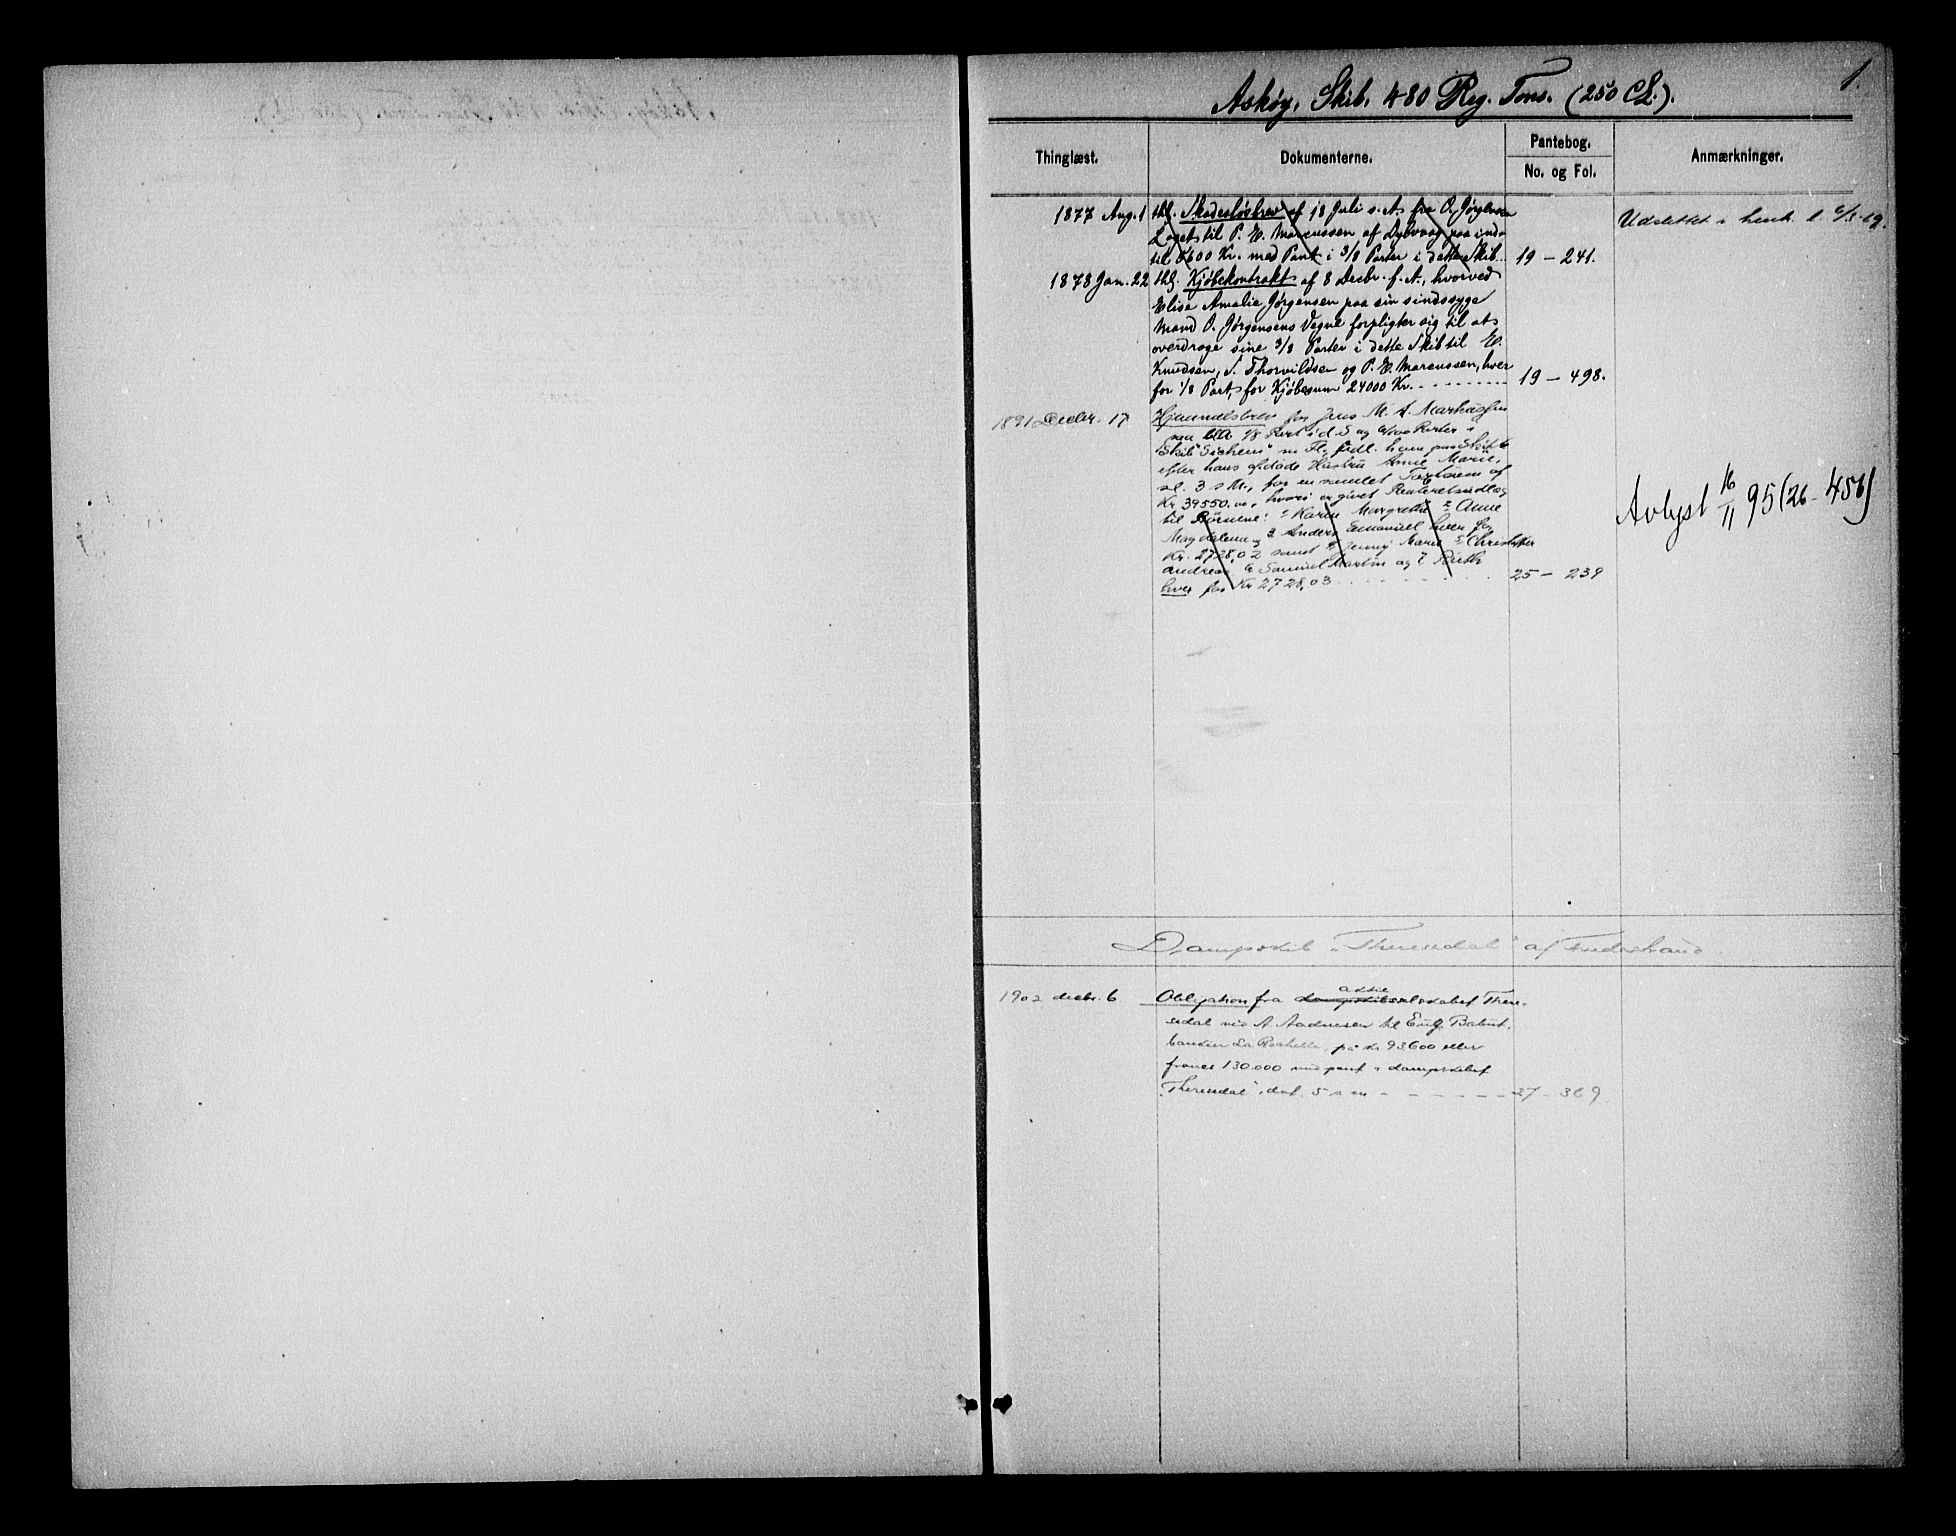 1.
Askøy, Skib, 480 Reg. Tons. (250 CL.).
Thinglæst. Dokumenterne. Pantebog. No. og Fol. Anmærkninger.
1877 Aug. 1 thl. Skadesløsbrev af 18 Juli s. A. fra O. Jørgensen
til P. W. Marcussen af Dybvaag paa ind-
til 8600 Kr. med Pant i 3/8 Parter i dette Skib.. 19 – 241.
Udslettet i henh. t.
1878 Jan. 22 thl. Kjøbekontrakt af 8 Decbr. f. A., hvorved
Elise Amalie Jørgensen paa sin sindssyge
Mand O. Jørgensens Vegne forpligter sig til at
overdrage sine 3/8 Parter i dette Skib til W.
Knudsen, S. Thorvildsen og P. W. Marcussen, hver
for 1/8 Part, for Kjøbesum 24000 Kr. - - - - - - - - 19 – 498.
1891 Decbr. 17 Hjemmelsbrev for Jens M. A. Markussen
paa bl. A. 1/8 Part i d. S og Parter i
Skib "Sichem" m Fl., udl. ham paa Skifte
efter hans afdøde Hustru Anne Marie,
al. 3 s M., for en samlet Taxtsum af
Kr 39550.00, hvori er givet Panteretsudlæg
til Børnene: 1 Karen Margrethe 2 Anne
Magdalena, 3 Anders Emanuel hver for
Kr. 2728,02 samt 4 Jenny Marie 5 Christoffer
Andreas, 6 Samuel Martin og 7 Ruth
hver for Kr 2728,03 - - - - - - - - 25 – 239
Avlyst 16/11 95 (26 - 456)
Dampskib "Theresdal" af Tvedestrand
1902 decbr. 6 Obligation fra aktieselskabet There-
sdal ved A. Aadnesen til Eug. Babut,
bankier La Rochelle, på kr 93600 eller
francs 130.000 med pant i dampskibet
"Theresdal", dat. 5 s m - - - - - - 27 – 369